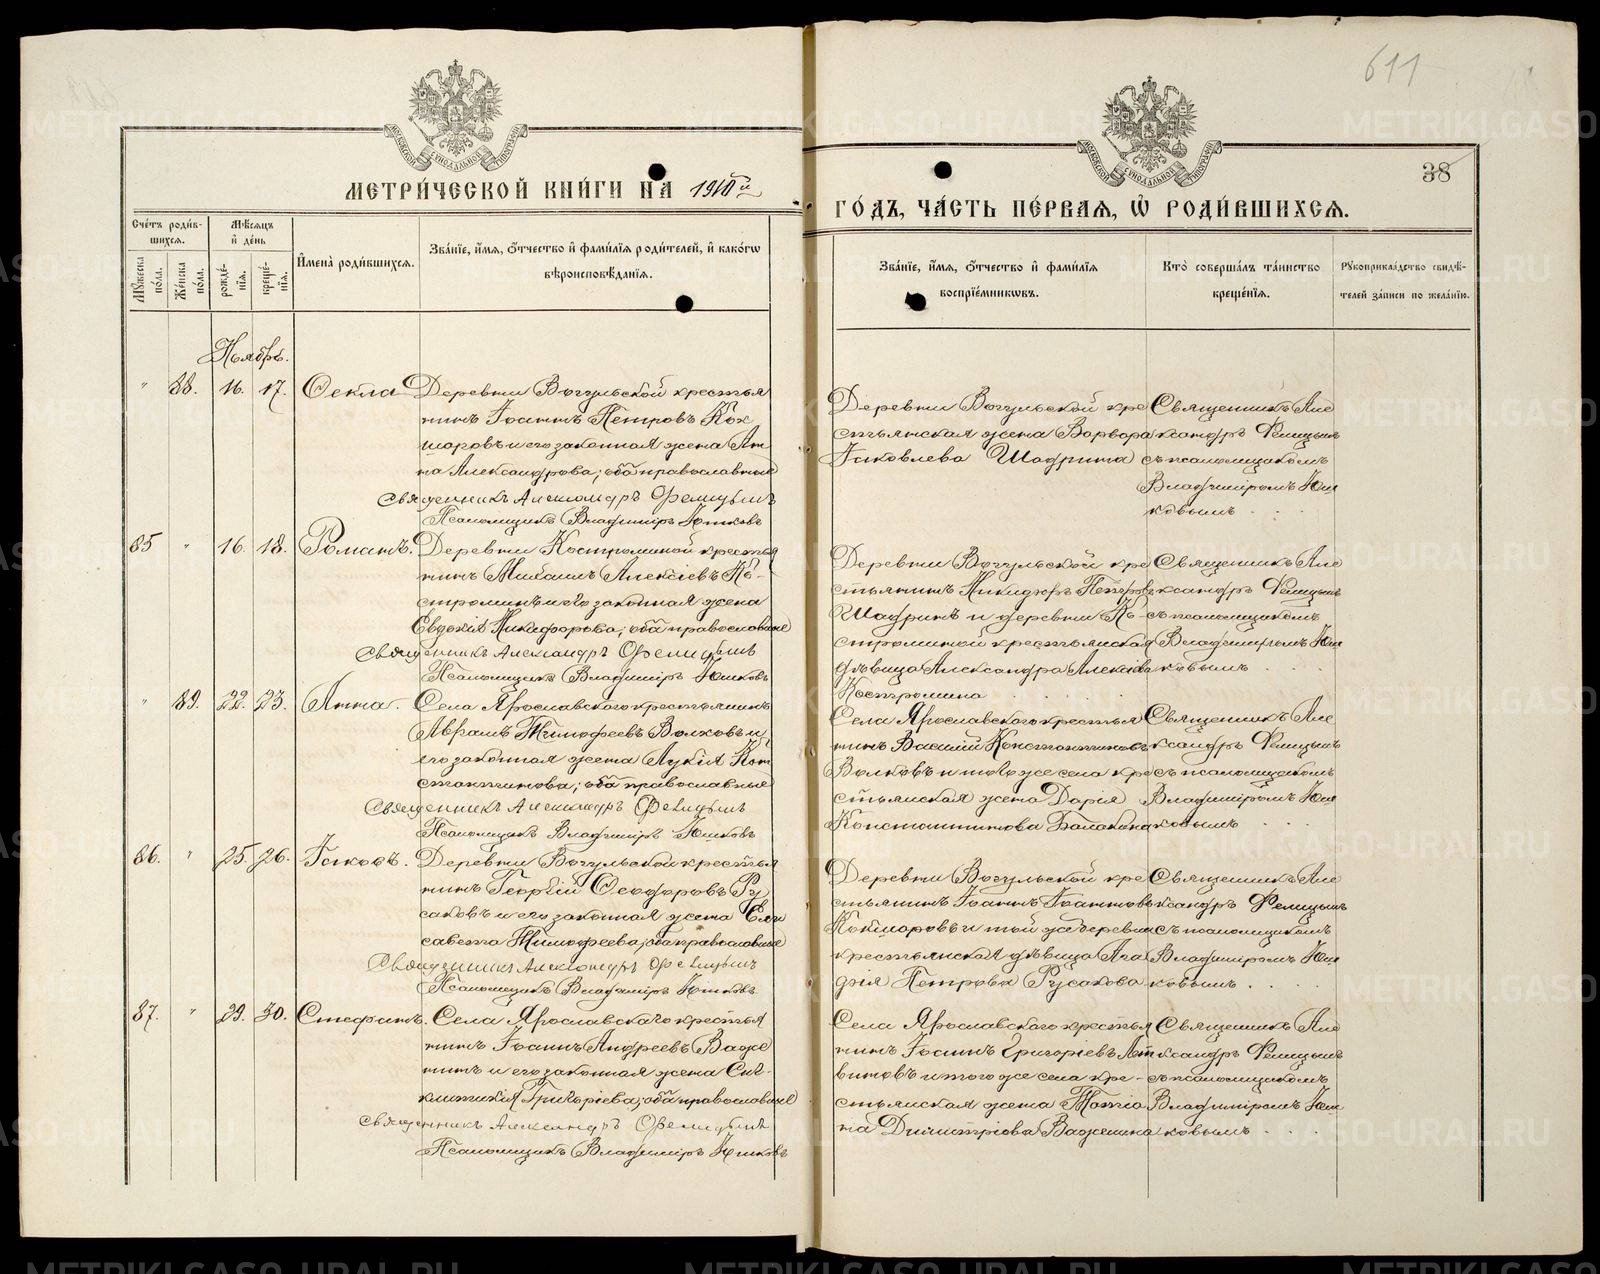 611
38
МЕТРИ́ЧЕСКОЙ КНИ́ГИ НА 1910й
ГО́ДЪ, ЧА́СТЬ ПЕ́РВАЯ, Ѡ РОДИ́ВШИХСЯ.
Сче́тъ роди́вшихся.
Мѣ́сяцъ и де́нь
Му́жеска по́ла.
Же́нска по́ла.
рожде́нія.
креще́нія.
Имена̀ роди́вшихся.
Зва́ніе, и́мя, о́тчество и фами́лія роди́телей, и како́гѡ
вѣроисповѣ́данія.
Зва́ніе, и́мя, о́тчество и фами́лія
воспріе́мникѡвъ.
Кто̀ соверша́лъ та́инство
креще́нія.
Рукоприкла́дство свидѣ́-
телей за́писи по жела́нію.
Ноябрь.
" 88. 16. 17. Ѳекла Деревни Вогульской крестья
нинъ Іоаннъ Петровъ Кок
шаровъ и его законная жена Ан
на Александрова; оба православные
Священникъ Александръ Фелицынъ
Псаломщикъ Владиміръ Юшковъ
Деревни Вогульской кре
стьянская жена Варвара
Іаковлева Шадрина
Священникъ Але
ксандръ Фелицынъ
съ псаломщикомъ
Владиміромъ Юш
ковымъ . . .
85 " 16. 18. Романъ. Деревни Костроминой крестья
нинъ Михаилъ Алексіевъ Ко-
строминъ и его законная жена
Евдокія Никифорова; оба православные
Священникъ Александръ Фелицынъ
Псаломщикъ Владиміръ Юшковъ
Деревни Вогульской кре
стьянинъ Никифоръ Петровъ
Шадринъ и деревни Ко-
строминой крестьянская
дѣвица Александра Алексіева
Костромина
Священникъ Але
ксандръ Фелицынъ
съ псаломщикомъ
Владиміромъ Юш
ковымъ . . .
" 89. 22. 23. Анна. Села Ярославскаго крестьянинъ
Аврамъ Тимофеевъ Волковъ и
его законная жена Лукія Кон
стантинова; оба православные
Священникъ Александръ Фелицынъ
Псаломщикъ Владиміръ Юшковъ
Села Ярославскаго крестья
нинъ Василій Константиновъ
Волковъ и того же села кре
стьянская жена Дарія
Константинова Балакина
Священникъ Але
ксандръ Фелицынъ
съ псаломщикомъ
Владиміромъ Юш
ковымъ . . .
86. " 25. 26. Іаковъ. Деревни Вогульской крестья
нинъ Георгій Ѳеодоровъ Ру
саковъ и его законная жена Ели
савета Тимофеева; оба православные
Священникъ Александръ Фелицынъ
Псаломщикъ Владиміръ Юшковъ
Деревни Вогульской кре
стьянинъ Іоаннъ Іоанновъ
Кокшаровъ и той же деревни
крестьянская дѣвица Ага
фія Петрова Русакова
Священникъ Але
ксандръ Фелицынъ
съ псаломщикомъ
Владиміромъ Юш
ковымъ . . .
87. " 29. 30. Стефанъ. Села Ярославскаго крестья
нинъ Іоаннъ Андреевъ Важе
нинъ и его законная жена Син-
клитикія Григоріева; оба православные
Священникъ Александръ Фелицынъ
Псаломщикъ Владиміръ Юшковъ
Села Ярославскаго крестья
нинъ Іоаннъ Григоріевъ Лит
виновъ и того же села кре-
стьянская жена Татіа
на Димитріева Важенина
Священникъ Але
ксандръ Фелицынъ
съ псаломщикомъ
Владиміромъ Юш
ковымъ . . .